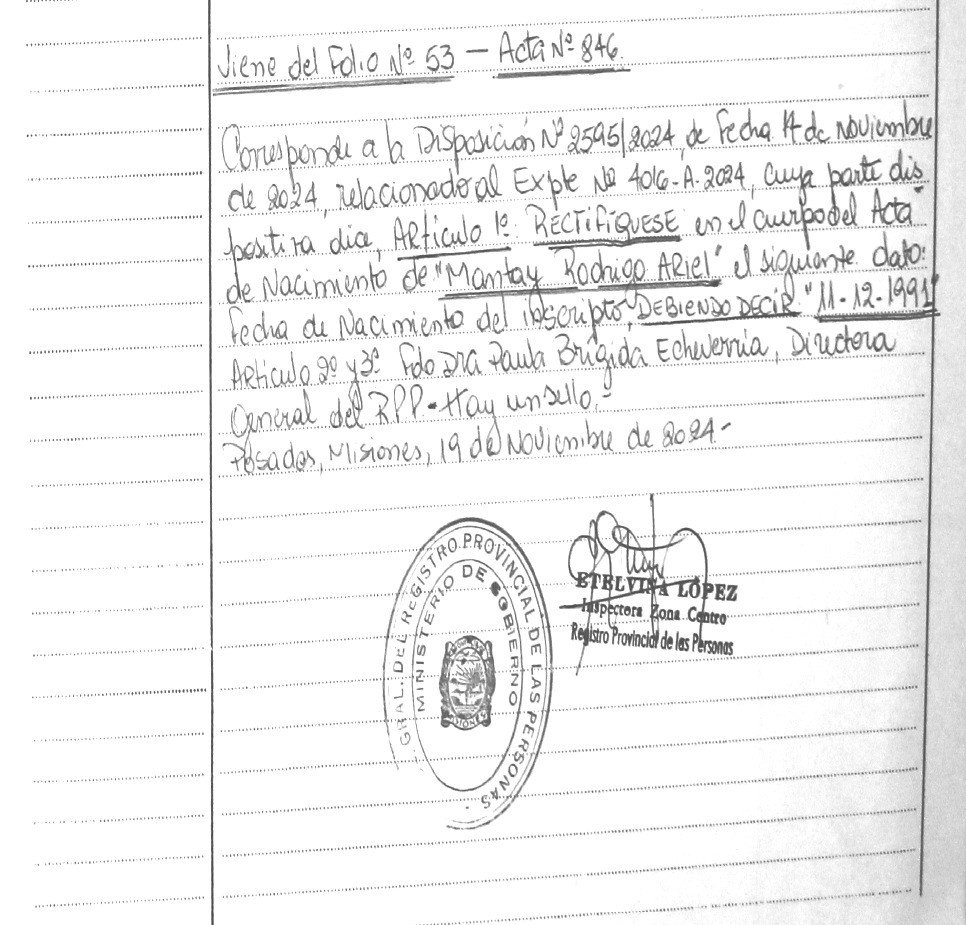 Viene del Folio Nº 53 — Acta Nº 846.
Corresponde a la Disposición Nº 2595/2024, de fecha 14 de Noviembre
de 2024, relacionado al Expte Nº 4016-A-2024, cuya parte dis
positiva dice, ARtículo 1º: RECTIFÍQUESE en el cuerpo del Acta
de Nacimiento de "Mantay Rodrigo ARiel" el siguiente dato:
Fecha de Nacimiento del inscripto, DEBIENDO DECIR "11-12-1991"
ARtículo 2º y 3º Fdo DRA Paula Brígida Echeverria, Directora
General del RPP - Hay un sello.-
Posadas, Misiones, 19 de Noviembre de 2024.-
GRAL. DEL REGISTRO PROVINCIAL DE LAS PERSONAS -
MINISTERIO DE GOBIERNO
MISIONES
ETELVINA LÓPEZ
Inspectora Zona Centro
Registro Provincial de las Personas